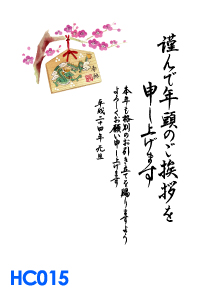 謹んで年頭のご挨拶を
申し上げます
本年も格別のお引き立てを賜りますよう
よろしくお願い申し上げます
平成二十四年 元旦
HC015